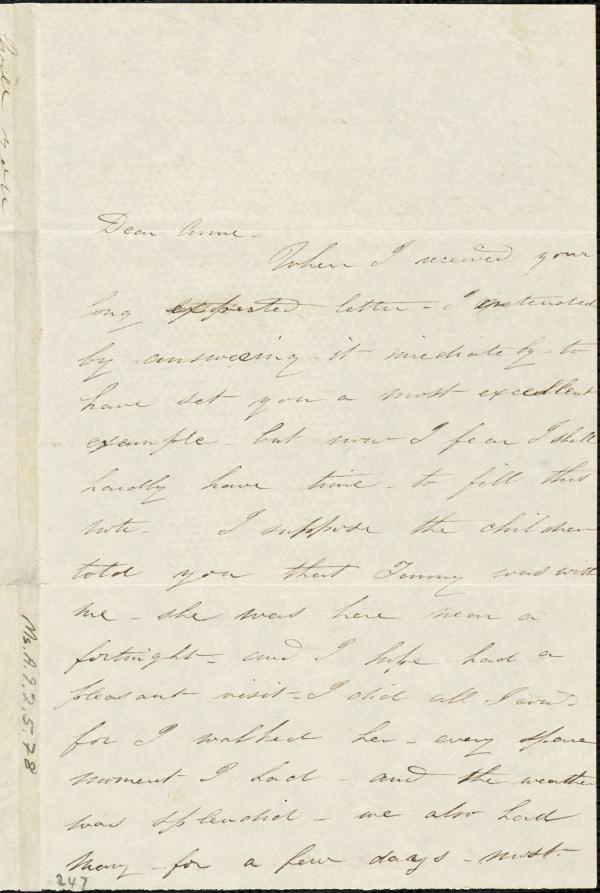 Dear Anne -
When I received your
long expected letter - I intended
by answering it imediately - to
have set you a most excellent
example - but now I fear I shall
hardly have time - to fill this
note - I suppose the children
told you that Fanny was with
me - she was here near a
fortnight - and I hope had a
pleasant visit - I did all I could
for I walked her - every spare
moment I had - and the weather
was splendid - we also had
Mary - for a few days - most
Ms.A.9.2.5.78
247